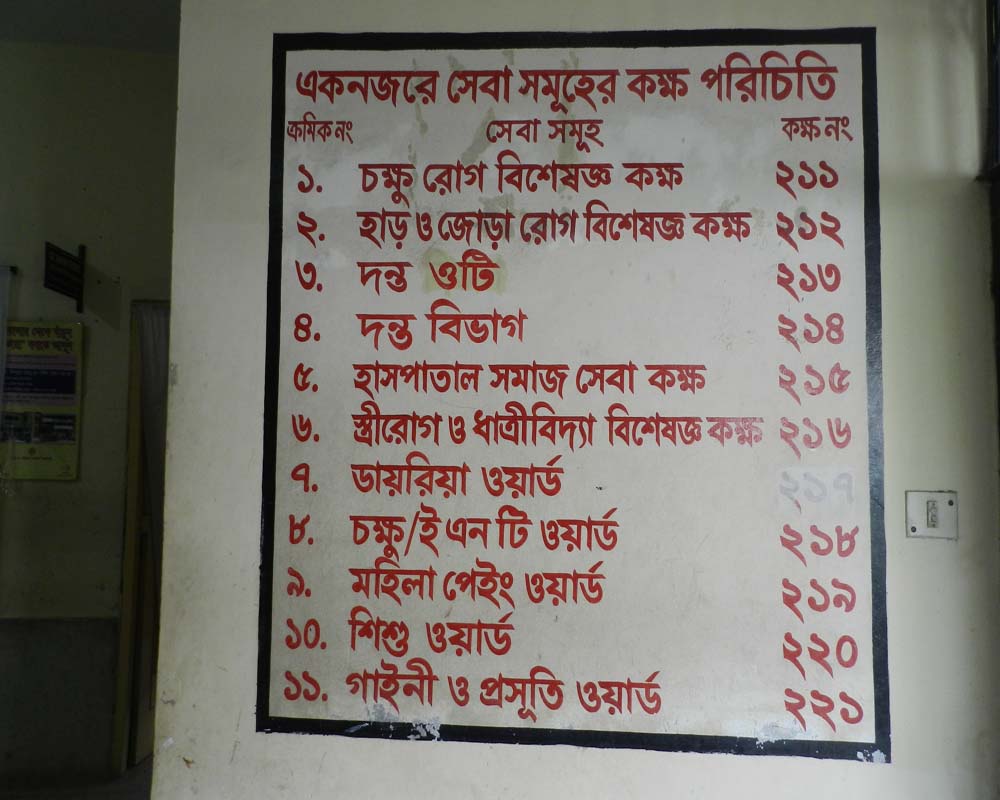 একনজরে সেবা সমূহের কক্ষ পরিচিতি
ক্রমিক নং সেবা সমূহ কক্ষ নং
১. চক্ষু রোগ বিশেষজ্ঞ কক্ষ ২১১
২. হাড় ও জোড়া রোগ বিশেষজ্ঞ কক্ষ ২১২
৩. দন্ত ওটি ২১৩
৪. দন্ত বিভাগ ২১৪
৫. হাসপাতাল সমাজ সেবা কক্ষ ২১৫
৬. স্ত্রীরোগ ও ধাত্রীবিদ্যা বিশেষজ্ঞ কক্ষ ২১৬
৭. ডায়রিয়া ওয়ার্ড ২১৭
৮. চক্ষু/ই এন টি ওয়ার্ড ২১৮
৯. মহিলা পেইং ওয়ার্ড ২১৯
১০. শিশু ওয়ার্ড ২২০
১১. গাইনী ও প্রসূতি ওয়ার্ড ২২১